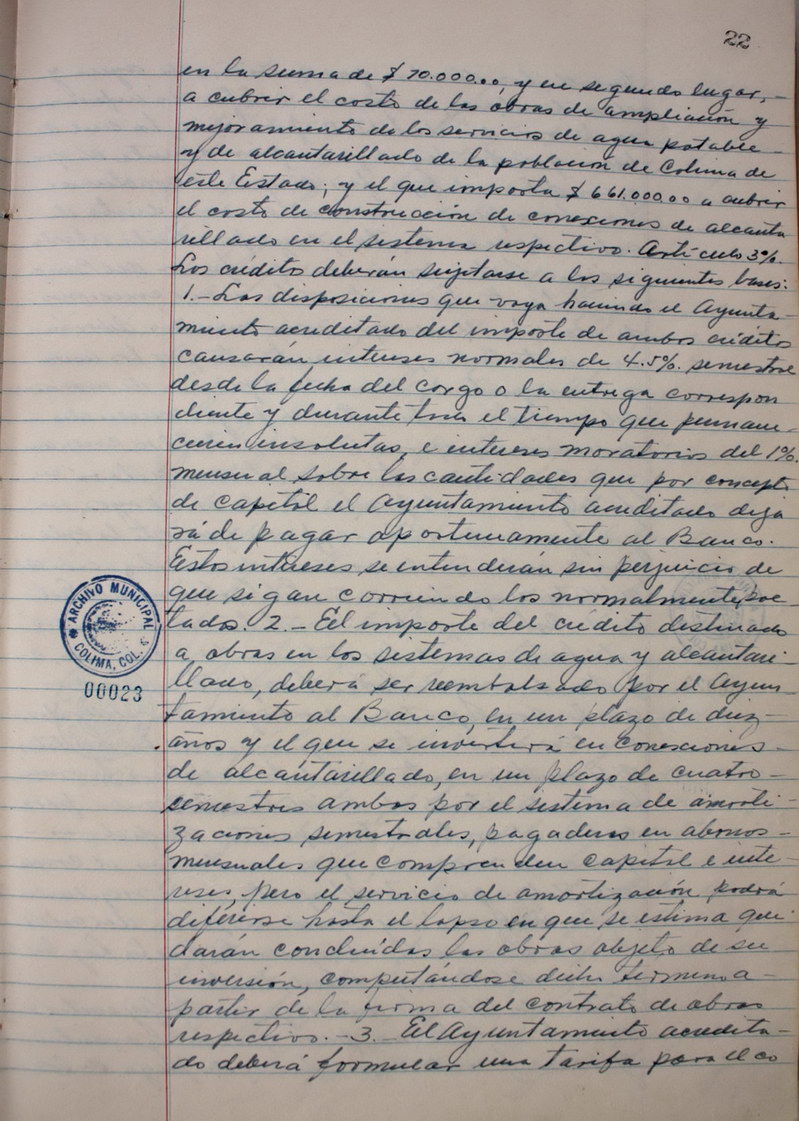 22
en la suma de $ 70.000.00, y en segundo lugar,-
a cubrir el costo de las obras de ampliación y
mejoramiento de los servicios de agua potable
y de alcantarillado de la población de Colima de
este Estado; y el que importa $ 661.000.00 a cubrir
el costo de construcción de conexiones de alcanta
rillado en el sistema respectivo. Artículo 3%.
Los créditos deberán sujetarse a los siguientes bases:
1.- Las disposiciones que vaya haciendo el Ayunta-
miento acreditado del importe de ambos créditos
causarán intereses normales de 4.5%. semestral
desde la fecha del cargo o la entrega correspon
diente y durante todo el tiempo que permane-
cieren insolutas, e intereses moratorios del 1%.
mensual sobre las cantidades que por concepto
de capital el Ayuntamiento acreditado deja
rá de pagar oportunamente al Banco.
Estos intereses se entenderán sin perjuicio de
que sigan corriendo los normalmente pac-
tados. 2.- El importe del crédito destinado
a obras en los sistemas de agua y alcantari-
llado, deberá ser reembolsado por el Ayun-
tamiento al Banco, en un plazo de diez-
años y el que se invertirá en conexiones-
de alcantarillado, en un plazo de cuatro-
semestres ambos por el sistema de amorti-
zaciones semestrales, pagaderas en abonos-
mensuales que comprenden capital e inte-
reses, pero el servicio de amortización podrá
diferirse hasta el lapso en que se estima que-
darán concluídas las obras objeto de su
inversión, computándose dicho termino a-
partir de la firma del contrato de obras
respectivo.- 3.- El Ayuntamiento acredita-
do deberá formular una tarifa para el co
ARCHIVO MUNICIPAL
COLIMA, COL.
00023